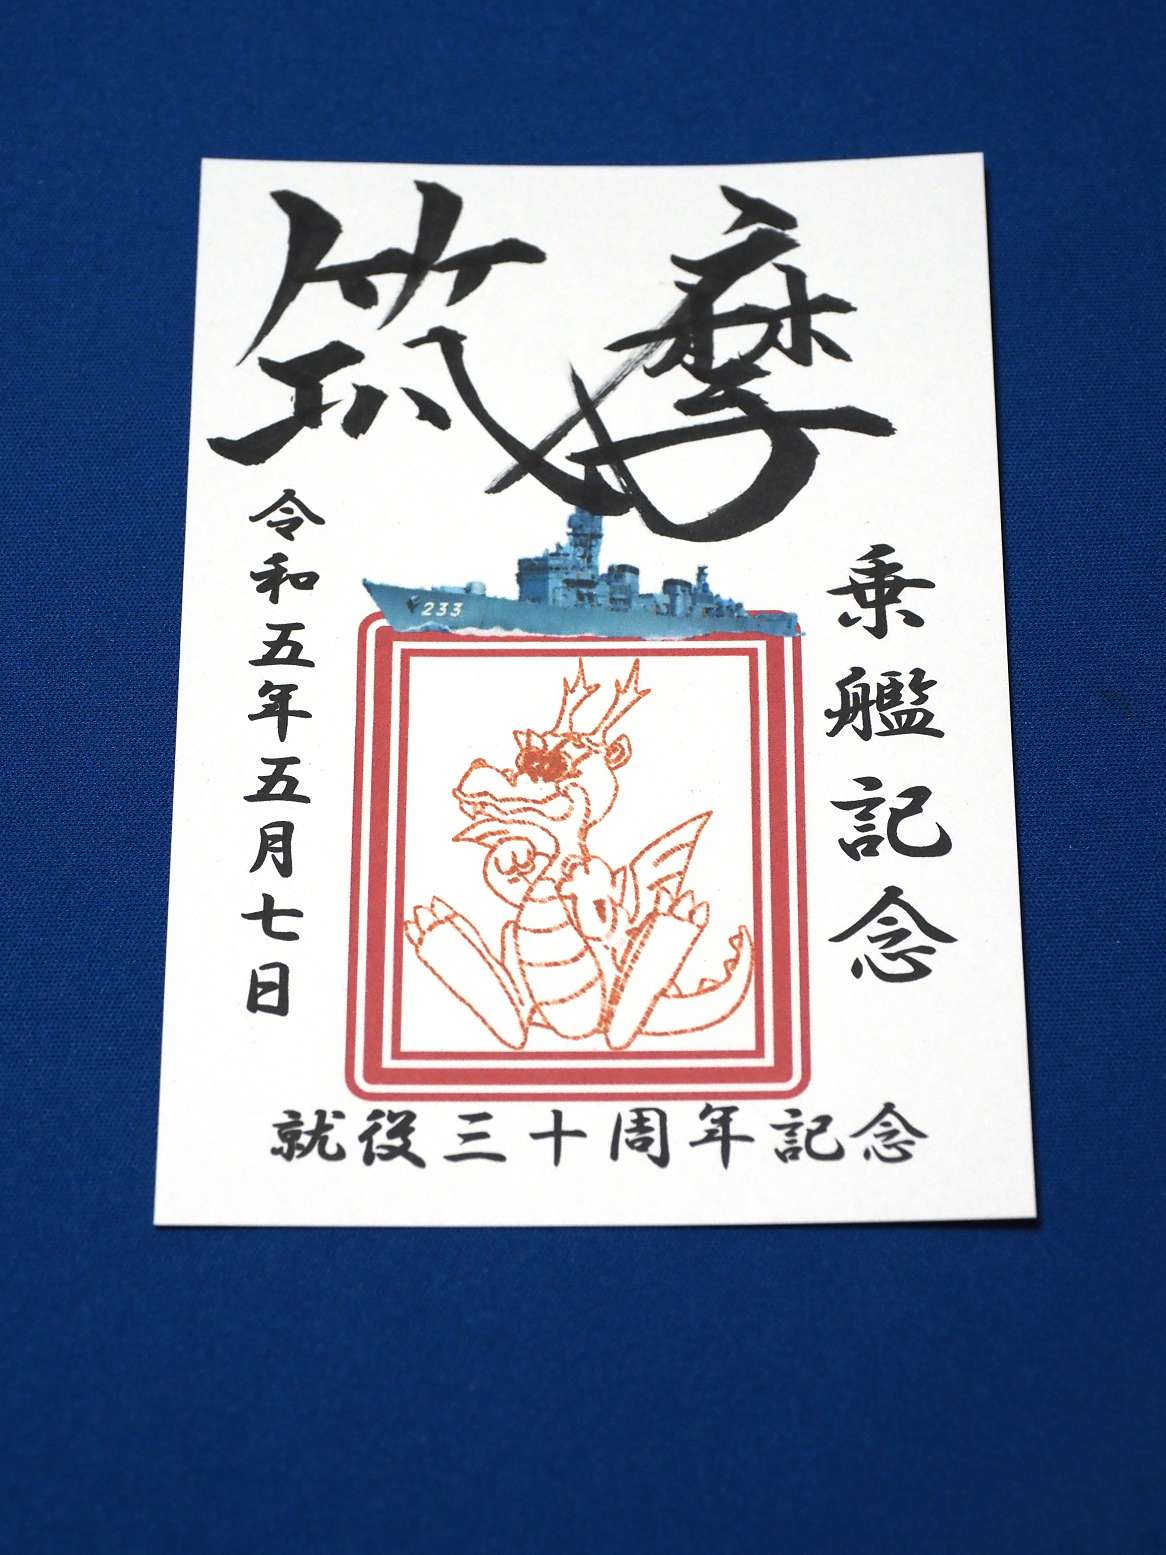 筑摩
乗艦記念
233
令和五年五月七日
就役三十周年記念